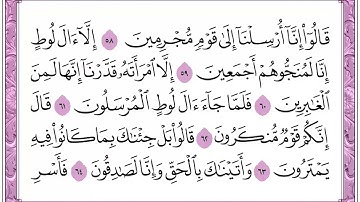 قَالُوٓاْ إِنَّآ أُرۡسِلۡنَآ إِلَىٰ قَوۡمٖ مُّجۡرِمِينَ ٥٨ إِلَّآ ءَالَ لُوطٍ
إِنَّا لَمُنَجُّوهُمۡ أَجۡمَعِينَ ٥٩ إِلَّا ٱمۡرَأَتَهُۥ قَدَّرۡنَآ إِنَّهَا لَمِنَ
ٱلۡغَٰبِرِينَ ٦٠ فَلَمَّا جَآءَ ءَالَ لُوطٍ ٱلۡمُرۡسَلُونَ ٦١ قَالَ
إِنَّكُمۡ قَوۡمٞ مُّنكَرُونَ ٦٢ قَالُواْ بَلۡ جِئۡنَٰكَ بِمَا كَانُواْ فِيهِ
يَمۡتَرُونَ ٦٣ وَأَتَيۡنَٰكَ بِٱلۡحَقِّ وَإِنَّا لَصَٰدِقُونَ ٦٤ فَأَسۡرِ